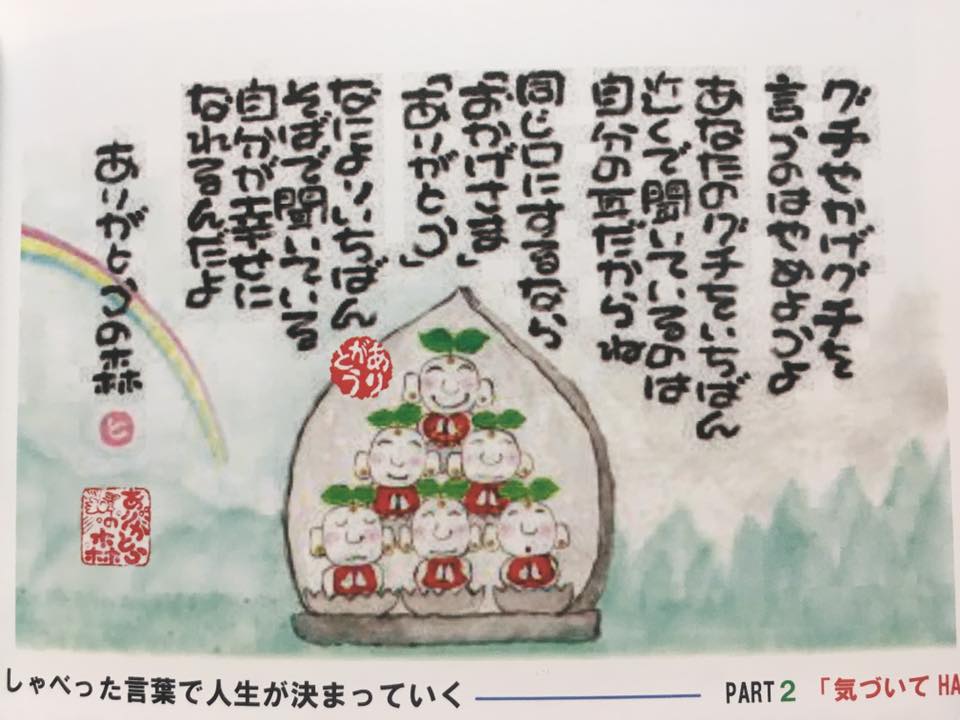 グチやかげグチを
言うのはやめようよ
あなたのグチをいちばん
近くで聞いているのは
自分の耳だからね
同じ口にするなら
「おかげさま」
「ありがとう」
なによりいちばん
そばで聞いている
自分が幸せに
なれるんだよ
ありがとうの森
と
ありがとう
ありがとうの森
しゃべった言葉で人生が決まっていく
PART2 「気づいて HA